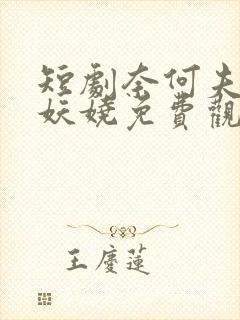 短劇奈何夫
妖嬈免費觀
王慶蓮